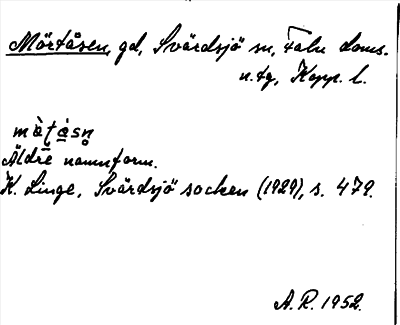 Mörtåsen, gd, Svärdsjö sn, Falu doms.
n. tg, Kopp. l.
Äldre namnform.
K. Linge, Svärdsjö socken (1929), s. 479.
A.R. 1952.